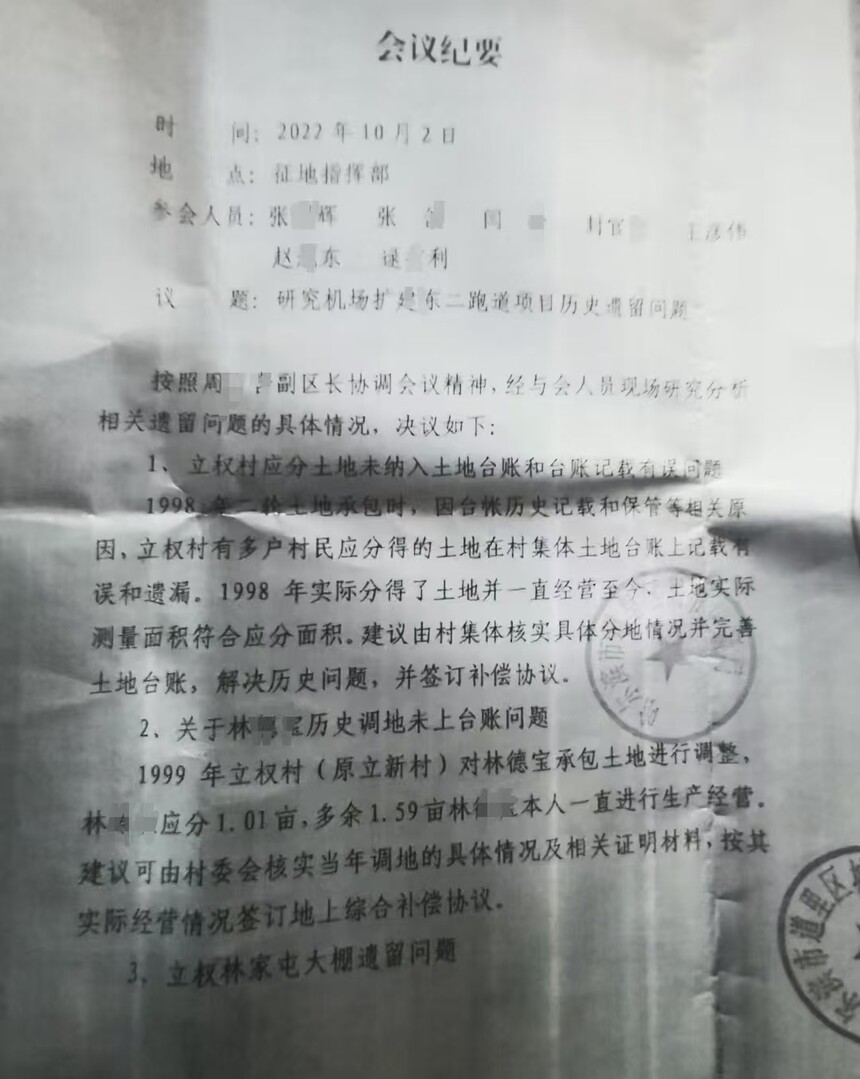 会议纪要
时 间：2022年10月2日
地 点：征地指挥部
参会人员：张 辉 张 闫 王彦伟
赵 东 利
议 题：研究机场扩建东二跑道项目历史遗留问题
按照周 副区长协调会议精神，经与会人员现场研究分析
相关遗留问题的具体情况，决议如下：
1、立权村应分土地未纳入土地台账和台账记载有误问题
1998 年二轮土地承包时，因台帐历史记载和保管等相关原
因，立权村有多户村民应分得的土地在村集体土地台账上记载有
误和遗漏。1998 年实际分得了土地并一直经营至今，土地实际
测量面积符合应分面积。建议由村集体核实具体分地情况并完善
土地台账，解决历史问题，并签订补偿协议。
2、关于林 历史调地未上台账问题
1999 年立权村（原立新村）对林德宝承包土地进行调整，
林 应分 1.01 亩，多余 1.59 亩林 本人一直进行生产经营。
建议可由村委会核实当年调地的具体情况及相关证明材料，按其
实际经营情况签订地上综合补偿协议。
3、立权林家屯大棚遗留问题
市道里区